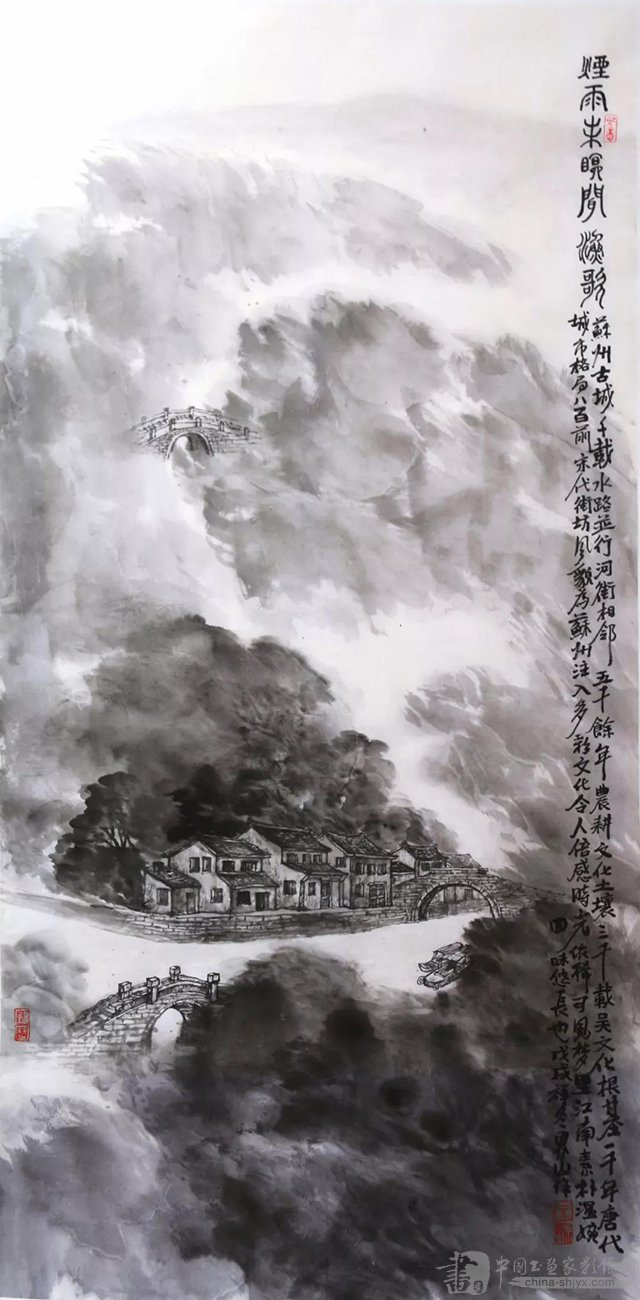 煙雨未晚聞漁歌
蘇州古城千載水路並行河街相鄰五千餘年農耕文化土壤三千載吳文化根基一千年唐代
城市格局八百前宋代街坊風貌為蘇州注入多彩文化令人倍感時光依稀可夢里江南素朴溫婉
回味悠長也戊戌冬山作
中國書畫家影像
china-shjyx.com